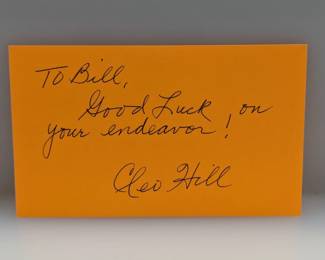 To Bill,
Good Luck on
your endeavor!
Cleo Hill